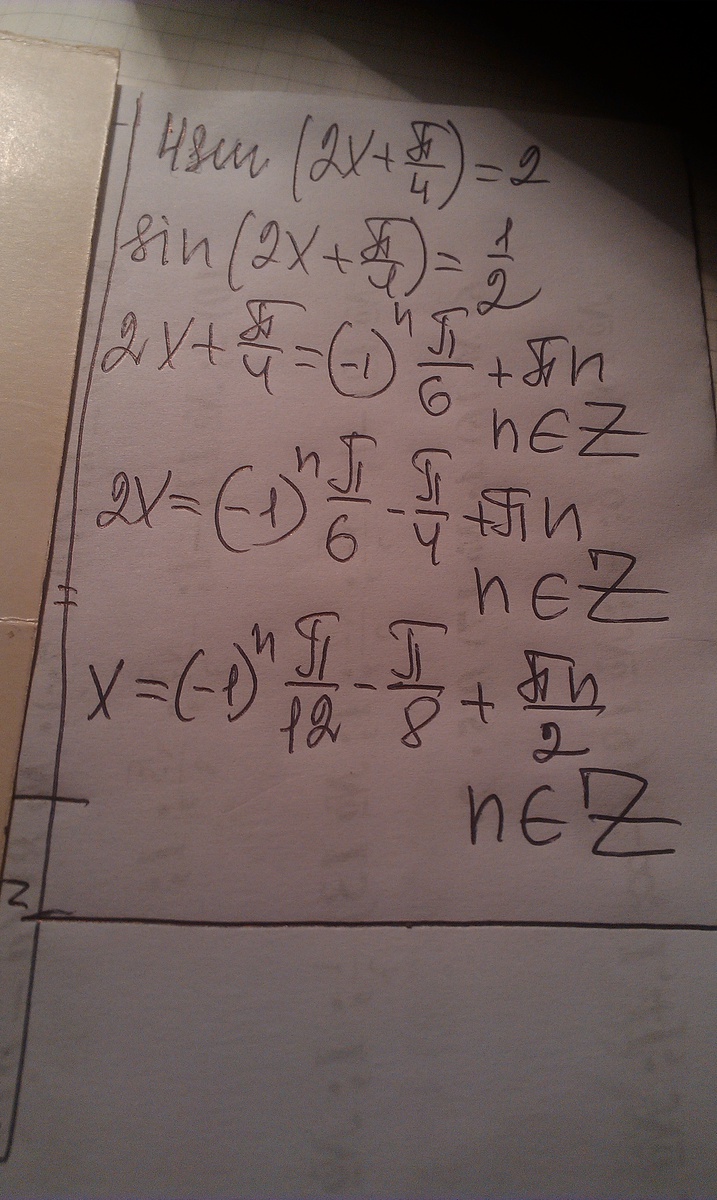 4sin (2x + π/4) = 2
sin (2x + π/4) = 1/2
2x + π/4 = (-1)ⁿ π/6 + πn
n ∈ Z
2x = (-1)ⁿ π/6 - π/4 + πn
n ∈ Z
x = (-1)ⁿ π/12 - π/8 + πn/2
n ∈ Z